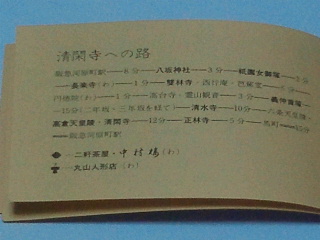 清閑寺への路
阪急河原町駅――8分――八坂神社――3分――祇園女御塚――5分
――長楽寺(わ)――1分――雙林寺・西行庵・芭蕉堂――
円徳院(わ)――1分――高台寺・霊山観音――3分――
――15分(二年坂・三年坂を経て)――清水寺――10分――六条天皇陵・
高倉天皇陵・清閑寺――12分――正林寺――5分――馬町――15分
阪急河原町駅
――二軒茶屋・中村楼(わ)
――丸山人形店(わ)